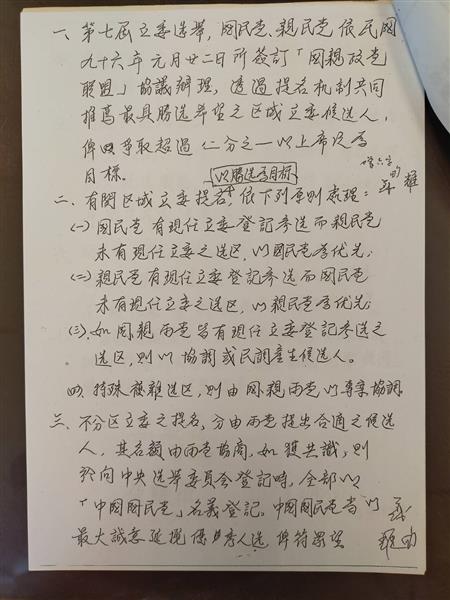 一、第七屆立委选举，國民党、親民党依民國
九十六年元月廿二日所簽訂「國親政党
联盟」協議辦理，透過提名机制共同
推薦最具勝选希望之区域立委候选人，
俾以爭取超過二分之一以上席次為
目標。
以勝选為目標
增六字
二、有関区域立委提名，依下列原則處理：
㈠國民党有現任立委登記參选而親民党
未有現任立委之选区，以國民党為优先；
㈡親民党有現任立委登記參选而國民党
未有現任立委之选区，以親民党為优先；
㈢如國親两党皆有現任立委登記參选之
选区，則以協調或民調產生候选人。
四、特殊複雜选区，則由國親两党以專案協調
三、不分区立委之提名，分由两党提出合適之候选
人，其名額由两党協商，如獲共識，則
於向中央选举委員会登記時，全部以
「中國國民党」名義登記。中國國民党当以
最大誠意延攬優秀人选俾符眾望